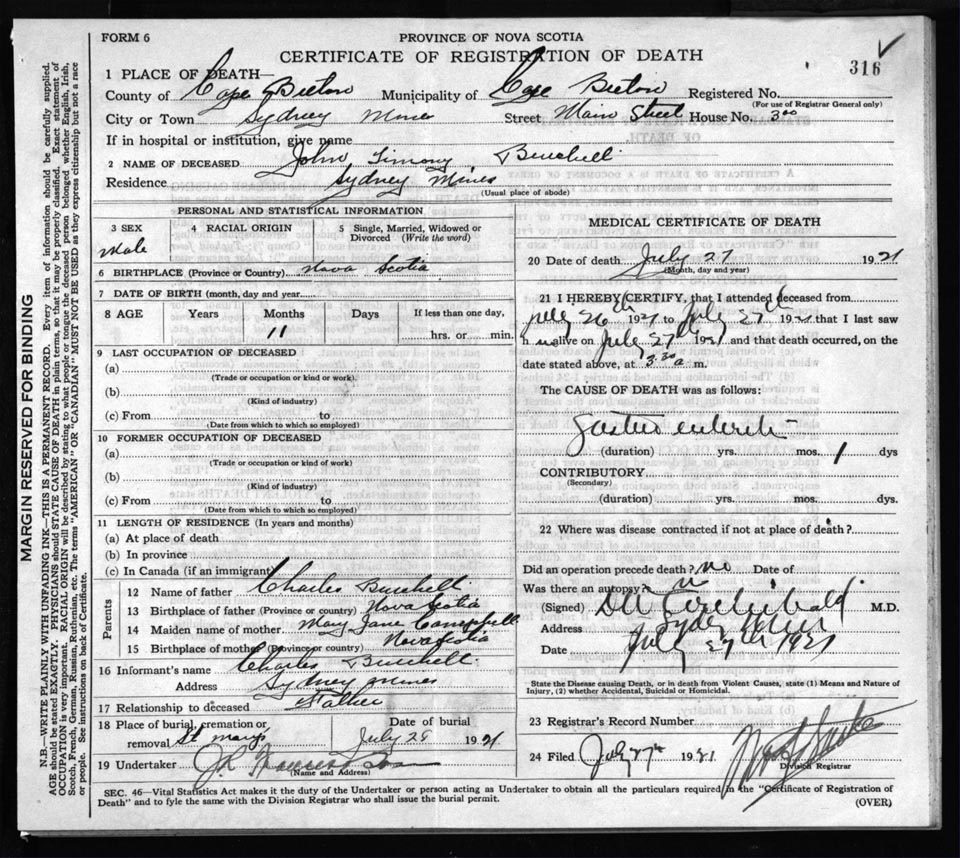 FORM 6
PROVINCE OF NOVA SCOTIA
CERTIFICATE OF REGISTRATION OF DEATH
316
1 PLACE OF DEATH—
County of Cape Breton Municipality of Cape Breton Registered No.
(For use of Registrar General only)
City or Town Sydney Mines Street Main Street House No. 300
If in hospital or institution, give name
2 NAME OF DECEASED John Timony Burchell
Residence Sydney Mines
(Usual place of abode)
PERSONAL AND STATISTICAL INFORMATION
3 SEX 4 RACIAL ORIGIN 5 Single, Married, Widowed or
Divorced (Write the word)
Male
6 BIRTHPLACE (Province or Country) Nova Scotia
7 DATE OF BIRTH (month, day and year)
8 AGE Years Months Days If less than one day,
11 hrs. or min.
9 LAST OCCUPATION OF DECEASED
(a)
(Trade or occupation or kind or work)
(b)
(Kind of industry)
(c) From to
(Date from which to which so employed)
10 FORMER OCCUPATION OF DECEASED
(a)
(Trade or occupation or kind of work)
(b)
(Kind of industry)
(c) From to
(Date from which to which so employed)
11 LENGTH OF RESIDENCE (In years and months)
(a) At place of death
(b) In province
(c) In Canada (if an immigrant)
Parents
12 Name of father Charles Burchell
13 Birthplace of father (Province or country) Nova Scotia
14 Maiden name of mother Mary Jane Campbell
15 Birthplace of mother (Province or country) Nova Scotia
16 Informant's name Charles Burchell
Address Sydney Mines
17 Relationship to deceased Father
18 Place of burial, cremation or Date of burial
removal St Marys July 28 1921
19 Undertaker
(Name and Address)
MEDICAL CERTIFICATE OF DEATH
20 Date of death July 27 1921
(Month, day and year)
21 I HEREBY CERTIFY, that I attended deceased from
July 26th 1921 to July 27th 1921 that I last saw
h alive on July 27th 1921 and that death occurred, on the
date stated above, at 3.30 a m.
The CAUSE OF DEATH was as follows:
Gastro enteritis
(duration) yrs. mos. 1 dys
CONTRIBUTORY
(Secondary)
(duration) yrs. mos. dys.
22 Where was disease contracted if not at place of death?
Did an operation precede death? no Date of
Was there an autopsy? no
(Signed) Archibald M.D.
Address Sydney Mines
Date July 27th 1921
State the Disease causing Death, or in death from Violent Causes, state (1) Means and Nature of
Injury, (2) whether Accidental, Suicidal or Homicidal.
23 Registrar's Record Number
24 Filed July 27th 1921
Division Registrar
SEC. 46—Vital Statistics Act makes it the duty of the Undertaker or person acting as Undertaker to obtain all the particulars required in the "Certificate of Registration of
Death" and to fyle the same with the Division Registrar who shall issue the burial permit.
(OVER)
MARGIN RESERVED FOR BINDING
N.B.—WRITE PLAINLY WITH UNFADING INK—THIS IS A PERMANENT RECORD. Every item of information should be carefully supplied.
AGE should be stated EXACTLY. PHYSICIANS should STATE CAUSE OF DEATH in plain terms, so that it may be properly classified. Exact statement of
OCCUPATION is very important. RACIAL ORIGIN will be described by stating to what people or tongue the deceased person belonged whether English, Irish,
Scotch, French, German, Russian, Ruthenian, etc. The terms "AMERICAN" OR "CANADIAN" MUST NOT BE USED as they express citizenship but not a race
or people. See instructions on back of Certificate.